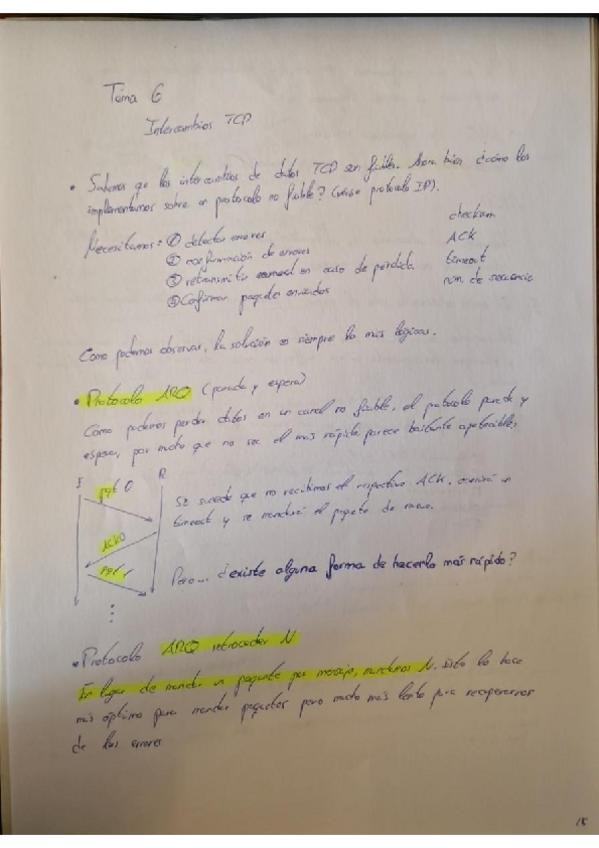 Tema 6
Intercambios TCP
• Sabemos que los intercambios de datos TCP son fiables. Ahora bien ¿cómo los
implementamos sobre un protocolo no fiable? (véase protocolo IP).
Necesitamos: ① detectar errores checksum
② confirmación de errores ACK
③ retransmitir en caso de pérdida. timeout
④ Confirmar paquetes enviados núm. de secuencia
Como podemos observar, la solución es siempre la más lógica.
• Protocolo ARQ (parada y espera)
Como podemos perder datos en un canal no fiable, el protocolo parada y
espera, por mucho que no sea el más rápido parece bastante apetecible.
E R
pqt 0
ACK0
pqt 1
Si sucede que no recibimos el respectivo ACK, ocurrirá un
timeout y se mandará el paquete de nuevo.
Pero... ¿existe alguna forma de hacerlo más rápido?
• Protocolo ARQ retroceder N
En lugar de mandar un paquete por mensaje, mandamos N. Esto lo hace
más óptimo para mandar paquetes pero mucho más lento para recuperarnos
de los errores
18